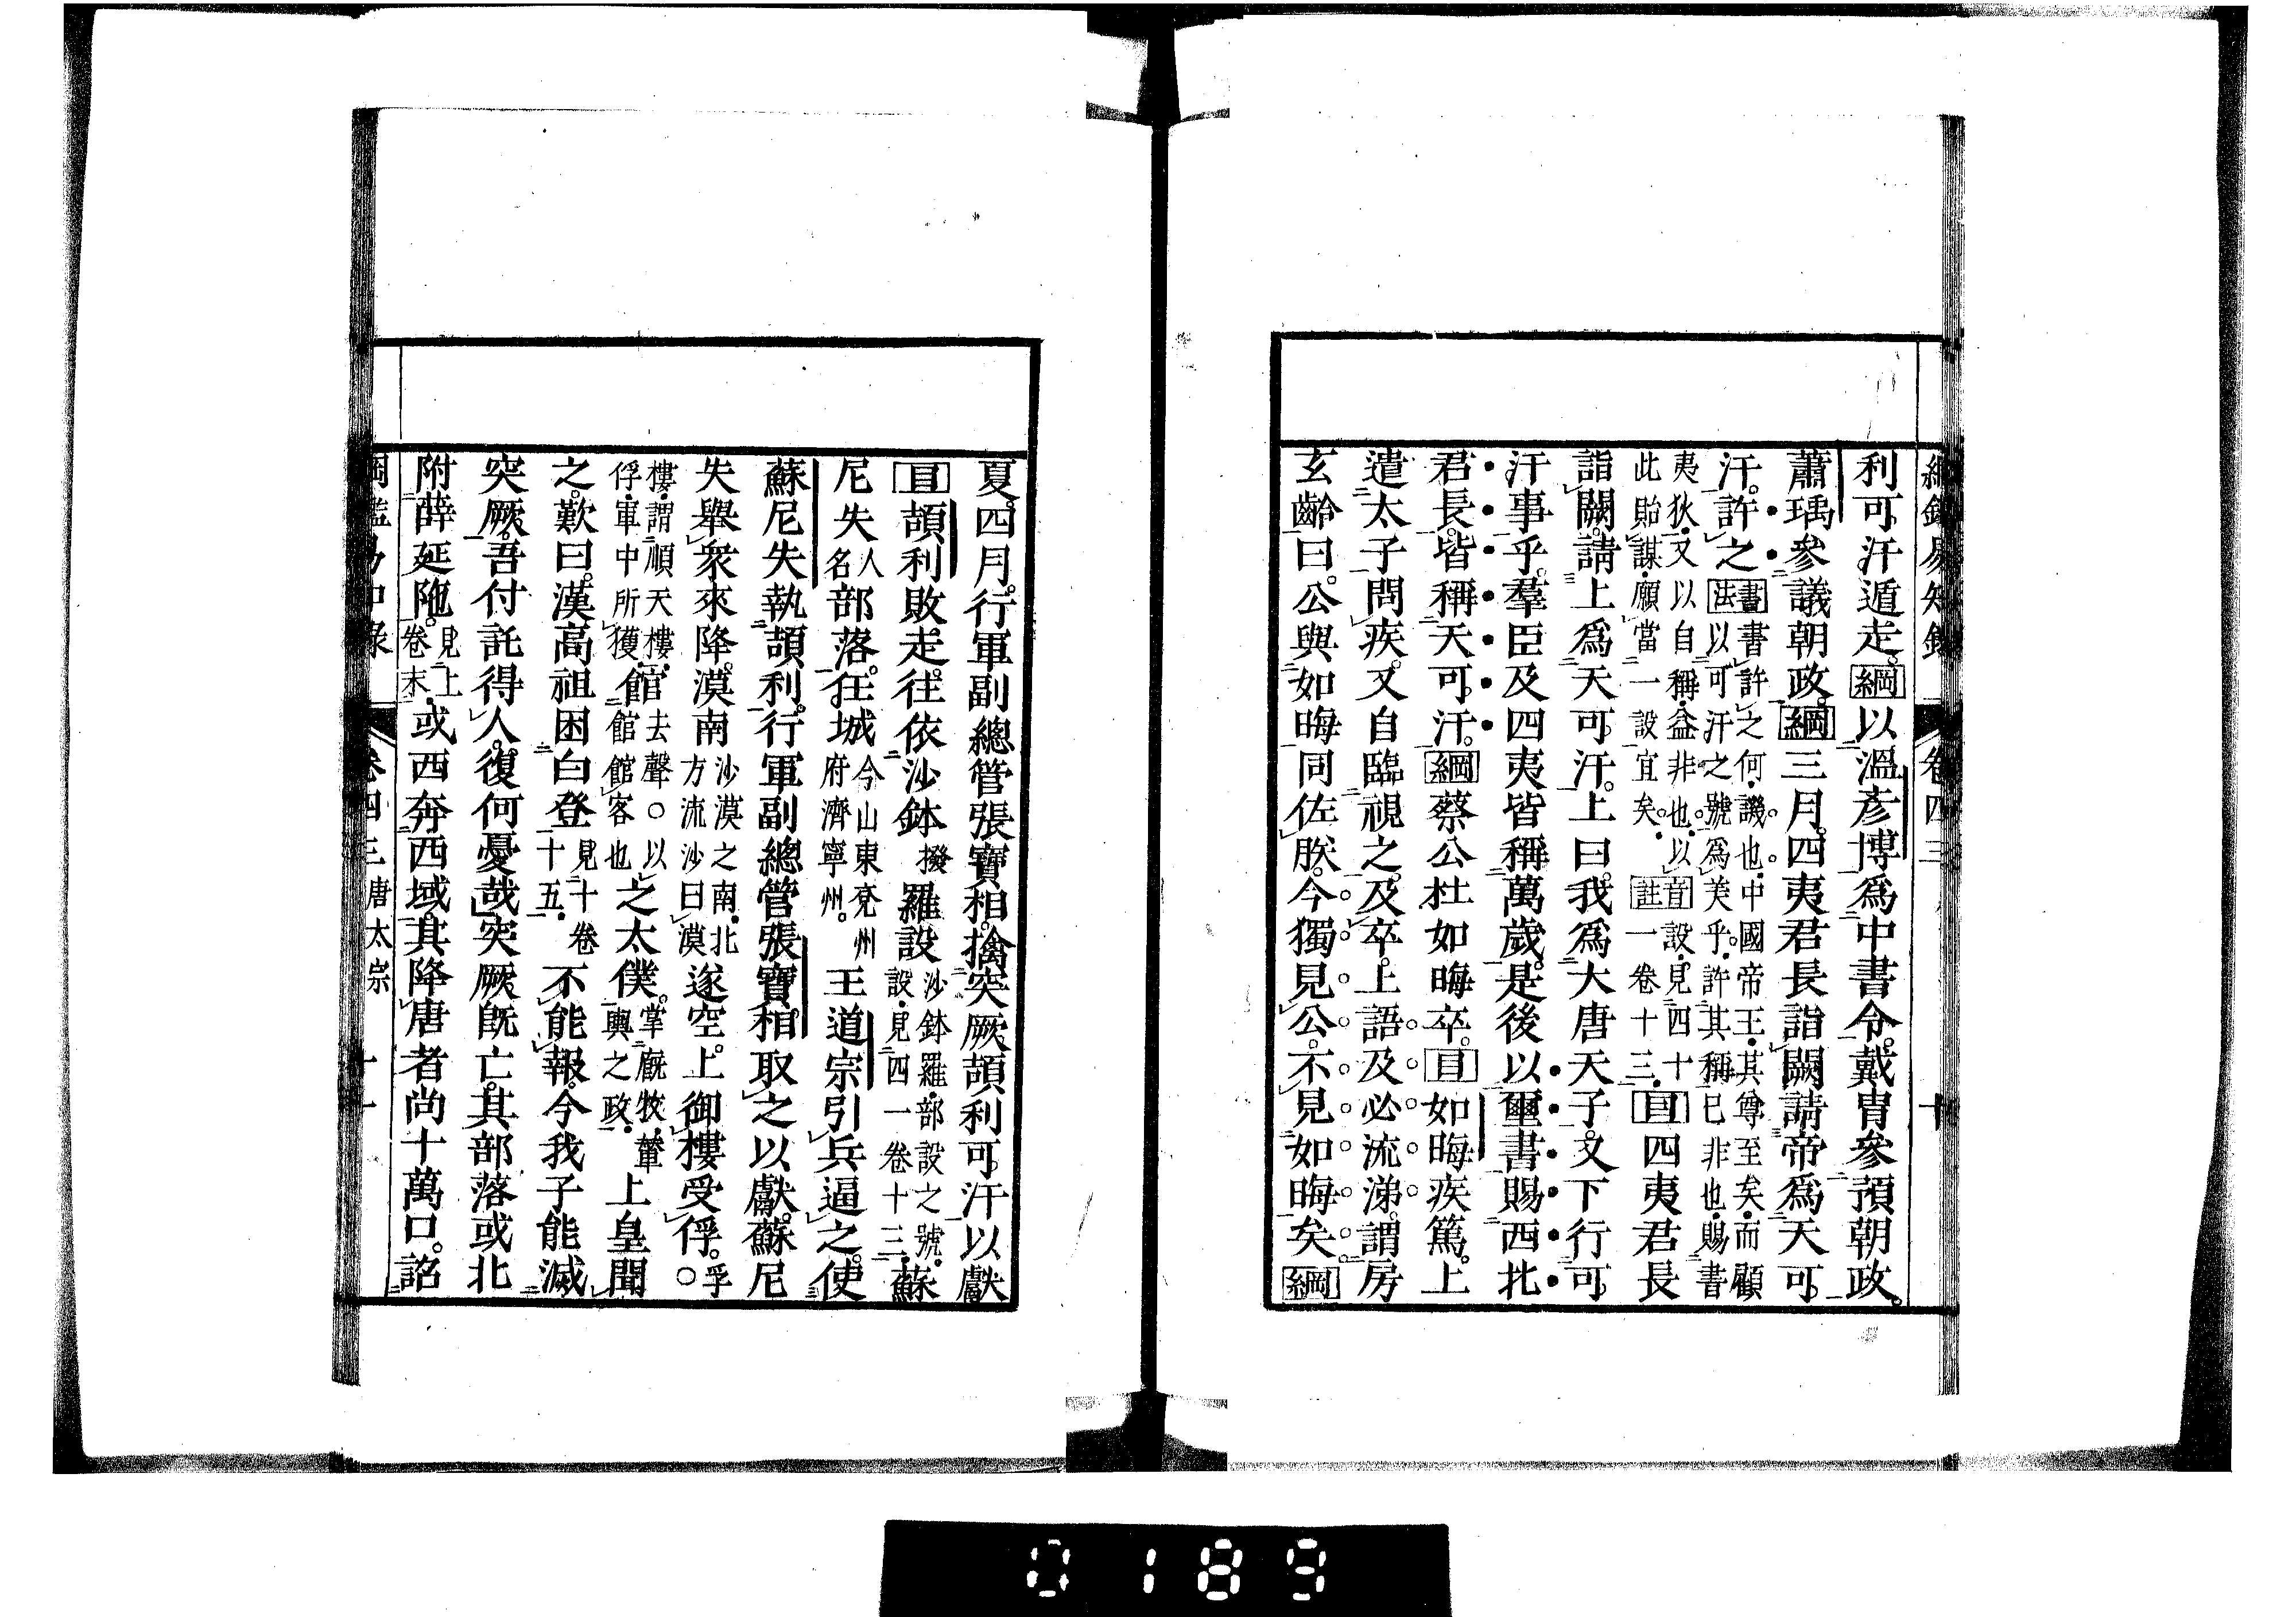 綱鑑易知錄 卷四三 十
利可汗遁走。綱以溫彥博爲中書令。戴冑參預朝政。
蕭瑀參議朝政。綱三月。四夷君長詣闕請帝爲天可
汗。許之書法書許之何。譏也。中國帝王。其尊至矣。而顧以可汗之號爲美乎。許其稱已非也。賜書
夷狄。又以自稱。益非也。以此貽謀。願當一設宜矣。音註設。見四十一卷十三。目四夷君長
詣闕。請上爲天可汗。上曰。我爲大唐天子。又下行可
汗事乎。羣臣及四夷皆稱萬歲。是後以璽書賜西北
君長。皆稱天可汗。綱蔡公杜如晦卒。目如晦疾篤。上
遣太子問疾。又自臨視之。及卒。上語及必流涕。謂房
玄齡曰。公與如晦同佐朕。今獨見公。不見如晦矣。綱
夏。四月。行軍副總管張寶相。擒突厥頡利可汗以獻
目頡利敗走。往依沙鉢撥羅設沙鉢羅。部設之號。設。見四一卷十三。蘇
尼失人名部落。任城今山東兗州府濟寧州。王道宗引兵逼之。使
蘇尼失執頡利。行軍副總管張寶相取之以獻。蘇尼
失舉衆來降。漠南沙漠之南。北方流沙曰漠遂空。上御樓受俘。孚○
樓。謂順天樓。俘。軍中所獲。館官去聲○以館館客也之太僕。掌廐牧。輦輿之政。上皇聞
之。歎曰。漢高祖困白登見十卷十五。不能報。今我子能滅
突厥。吾付託得人。復何憂哉。突厥旣亡。其部落或北
附薛延陁。見上卷末。或西奔西域。其降唐者尚十萬口。詔
綱鑑易知錄 卷四三 唐太宗 十一
0189